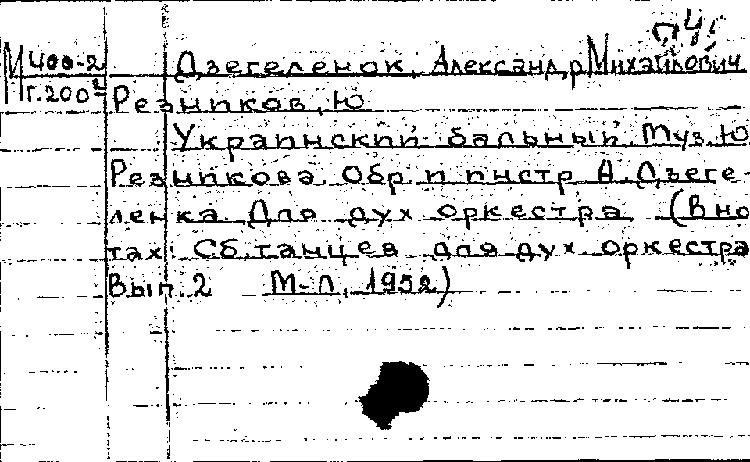 п45
М 400-2 Дзегеленок, Александр Михайлович
г.200² Резников, Ю
Украинский бальный. Муз. Ю.
Резникова. Обр. и инстр А. Дзеге-
ленка. Для дух оркестра. (В но
тах: Сб. танцев для дух оркестра
Вып. 2 М-Л, 1952)